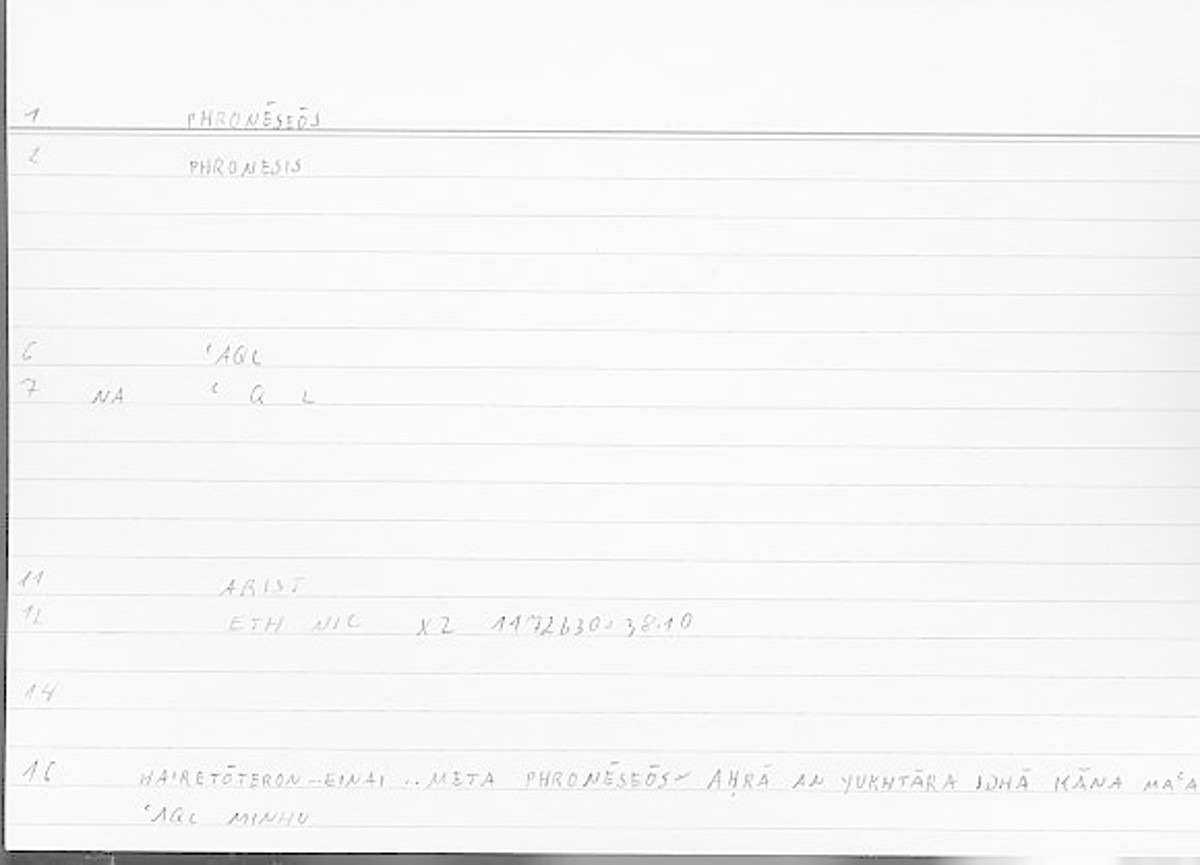 1 PHRONĒSEŌS
2 PHRONESIS
6 ʿAQL
7 NA ʿ Q L
11 ARIST
12 ETH NIC X2 1172b30
14
16 HAIRETŌTERON--EINAI .. META PHRONĒSEŌS~ AḤRĀ AN YUKHTĀRA IDHĀ KĀNA MAʿA
ʿAQL MINHU